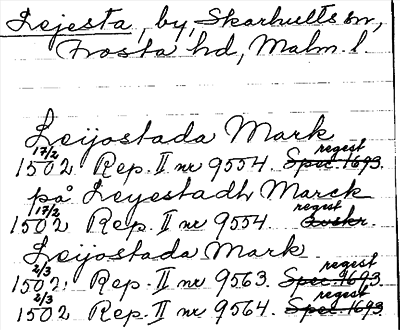 Lejesta, by, Skarhults sn,
Frosta hd, Malm. l.
Leijostada Mark
17/2 regest
1502 Rep. II nr 9554. Spec. 1693.
på Leyestadh Marck
17/2 regest
1502 Rep. II nr 9554 Avskr.
Leijostada Mark
2/3 regest
1502. Rep. II nr 9563. Spec. 1693.
2/3 regest
1502 Rep. II nr 9564. Spec. 1693.